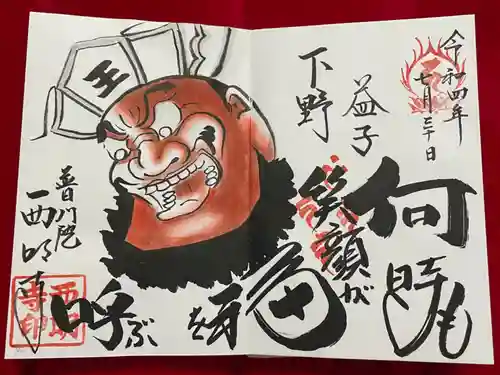 令和四年
七月三十日
益子
下野
何時も
笑顔が
福を
呼ぶ
王
普門院
西明寺
西明
寺印